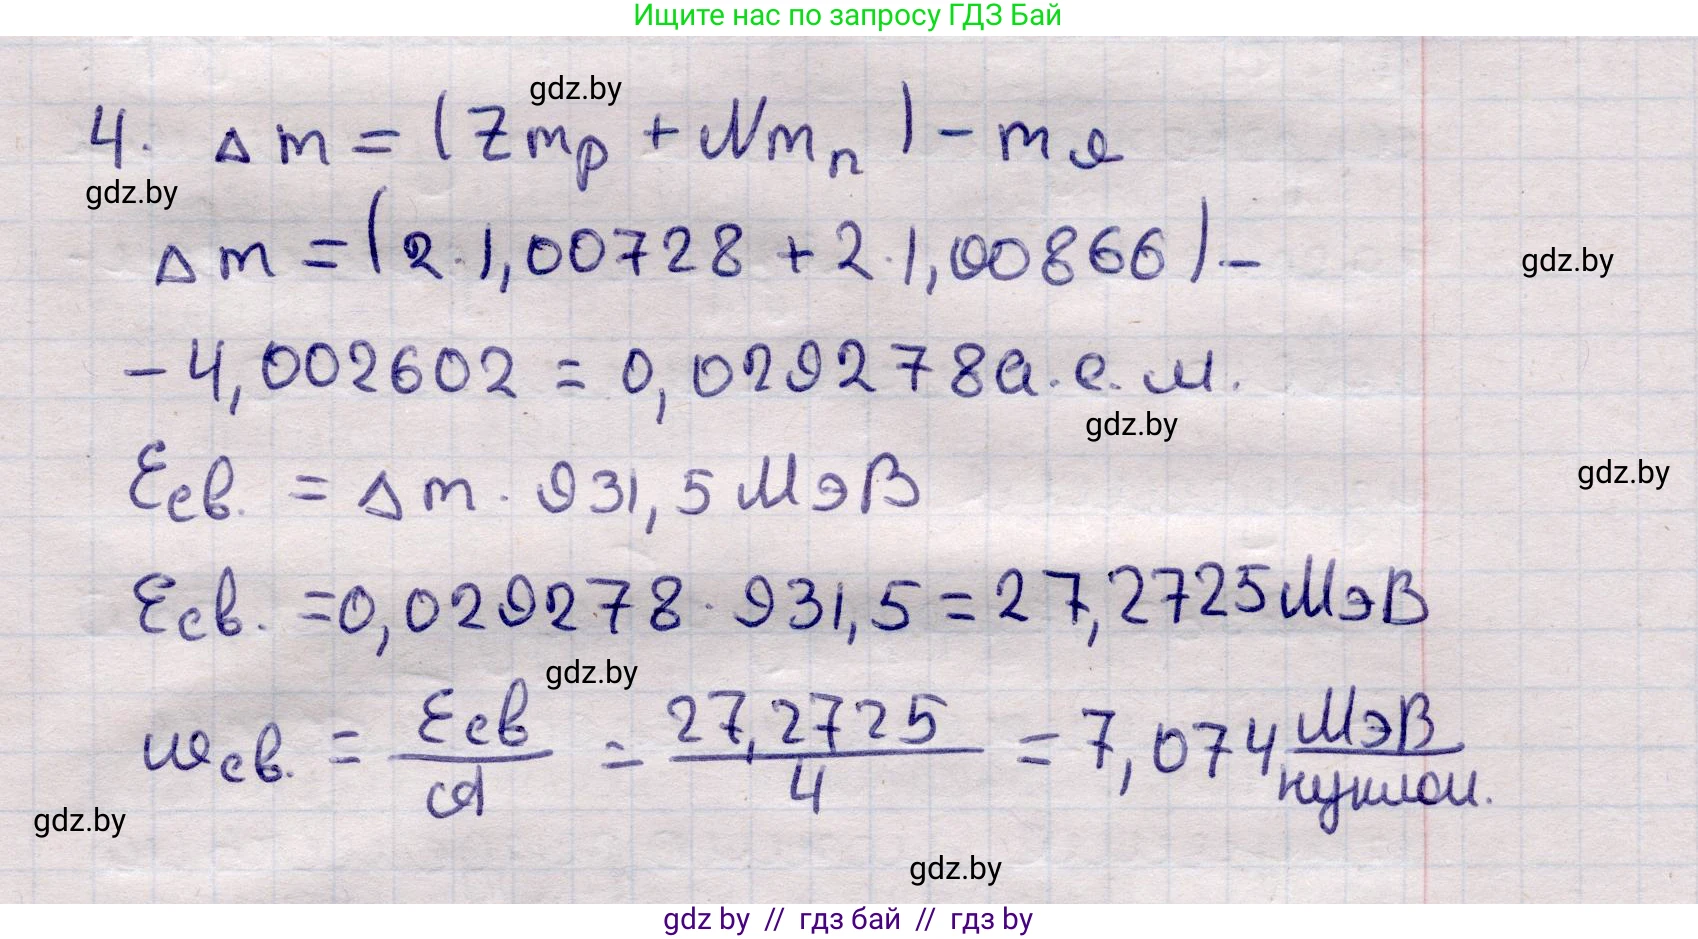 Ищите нас по запросу ГДЗ Бай
gdz.by
4. Δm = (Zmp + Nmn) - mя
gdz.by
Δm = (2·1,00728 + 2·1,00866) -
gdz.by
- 4,002602 = 0,029278 а.е.м.
gdz.by
Eсв. = Δm · 931,5 МэВ
gdz.by
Eсв. = 0,029278 · 931,5 = 27,2725 МэВ
gdz.by
wсв. = Eсв/A = 27,2725/4 = 7,074 МэВ/нуклон.
gdz.by
gdz.by
gdz by // гдз бай // гдз by